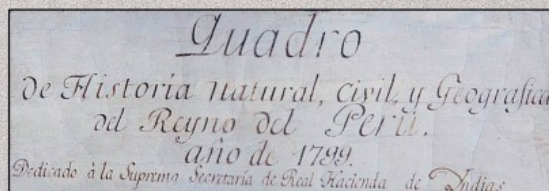 Quadro
de Historia natural, civil, y Geografica
del Reyno del Perú.
año de 1799.
Dedicado à la Suprema Secretaría de Real Hacienda de Indias